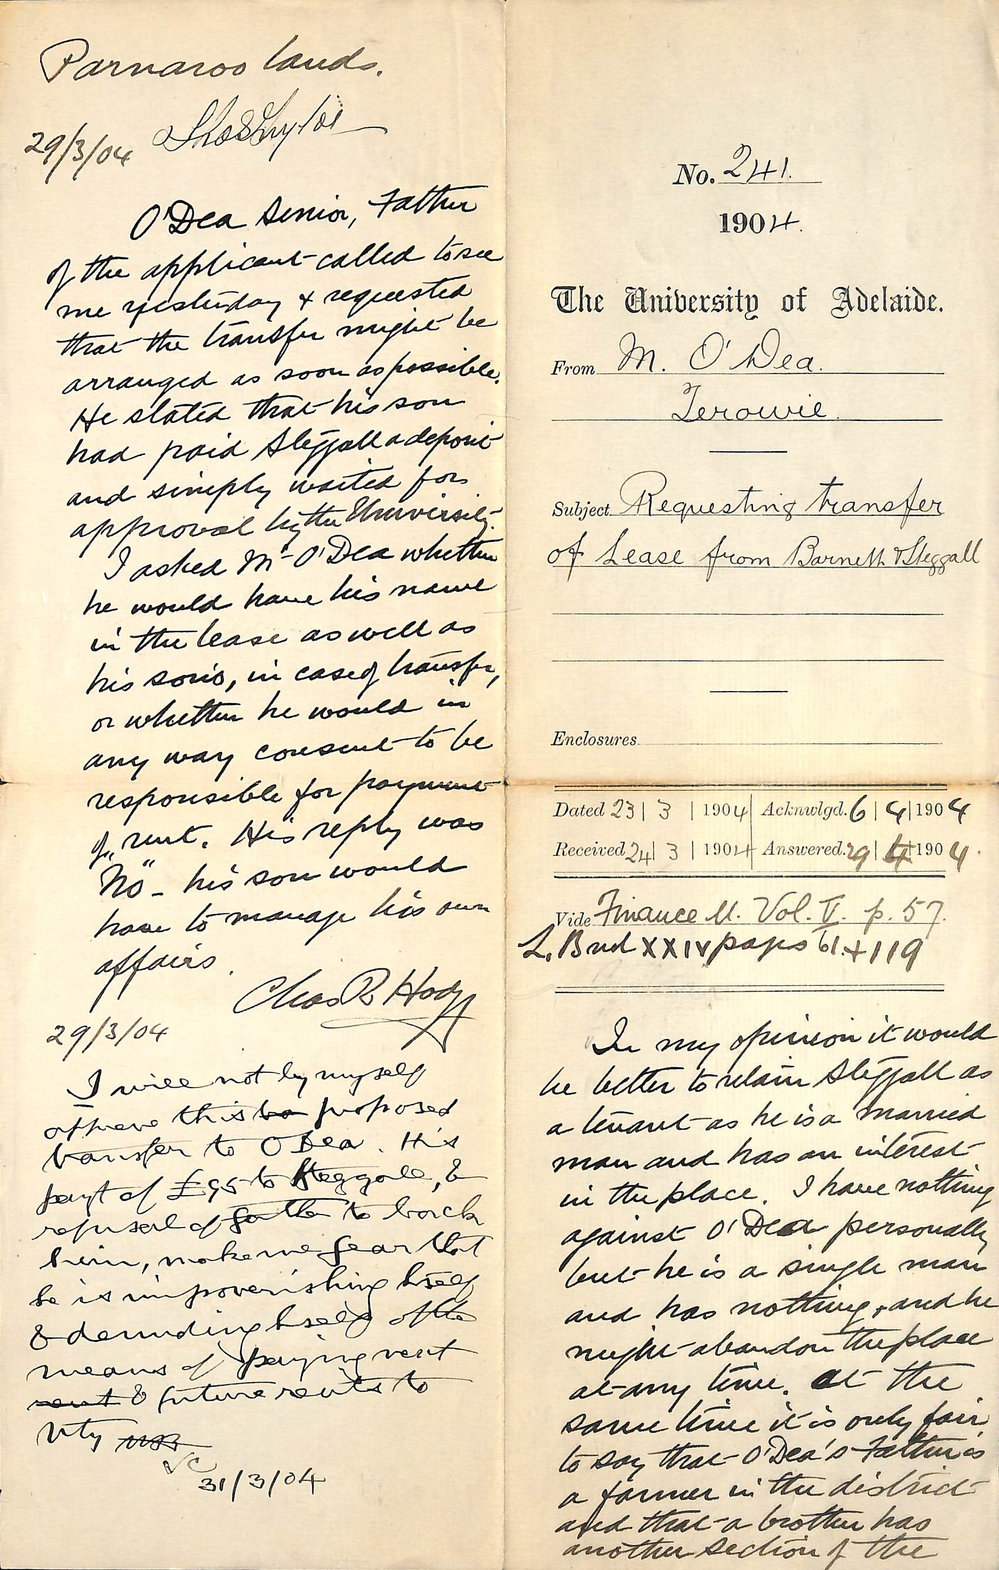 Parnaroo lands.
29/3/04
O'Dea Senior, Father
of the applicant called to see
me yesterday & requested
that the transfer might be
arranged as soon as possible.
He stated that his son
had paid Steggall a deposit
and simply waited for
approval by the University.
I asked Mr O'Dea whether
he would have his name
in the lease as well as
his son's, in case of transfer,
or whether he would in
any way consent to be
responsible for payment
of rent. His reply was
"No" - his son would
have to manage his own
affairs.
Chas R Hodge
29/3/04
I will not by myself
approve this proposed
transfer to O'Dea. His
payt of £95 to Steggall, &
refusal of father to back
him, make me fear that
he is impoverishing hself
& denuding hself of the
means of paying rent
rent & future rents to
Uty
31/3/04
No. 241.
1904.
The University of Adelaide.
From M. O'Dea.
Terowie.
Subject Requesting transfer
of Lease from Barnett & Steggall
Enclosures
Dated 23 | 3 | 1904 Acknwlgd. 6 | 4 | 1904
Received 24 | 3 | 1904 Answered. 29 | 4 | 1904.
Vide Finance M. Vol. V. p. 57.
L. B nd XXIV pages 61 + 119
In my opinion it would
be better to retain Steggall as
a tenant as he is a married
man and has an interest
in the place. I have nothing
against O'Dea personally
but he is a single man
and has nothing, and he
might abandon the place
at any time. At the
same time it is only fair
to say that O'Dea's Father is
a farmer in the district
and that a brother has
another section of the